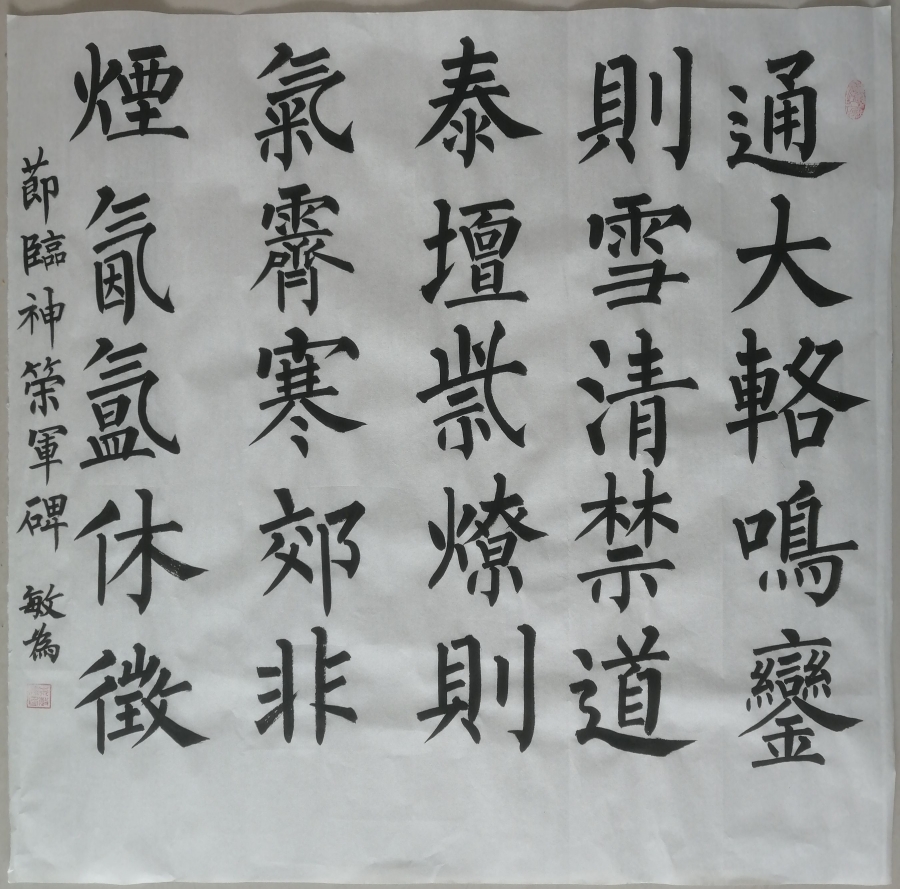 通大輅鳴鑾
則雪清禁道
泰壇祡燎則
氣霽寒郊非
煙氤氳休徵
莭臨神策軍碑 敏為